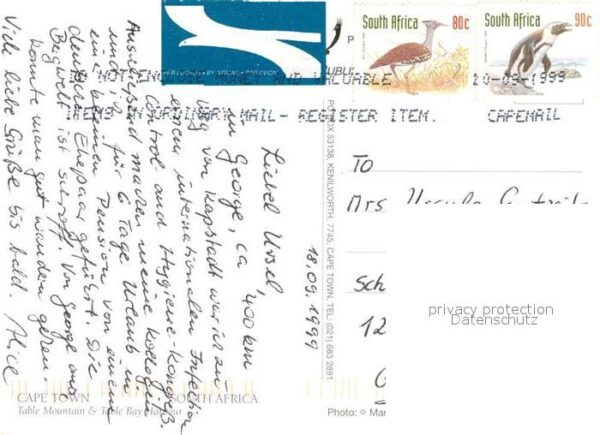 South Africa 80c
South Africa 90c
DO NOT ENCLOSE MONEY AND VALUABLE
20-09-1999
ITEMS IN ORDINARY MAIL - REGISTER ITEM.
CAPEMAIL
18.09.1999
Liebe Ursel,
in George, ca 400 km
weg von Kapstadt war ich zu
einem internationalen Infection
Control and Hygiene-Kongreß.
Anschließend machen meine Kollegin
und ich für 6 Tage Urlaub in
einer kleinen Pension von einem
deutschen Ehepaar geführt. Die
Bergwelt ist schroff. Von George aus
konnte man gut wandern gehen.
Viele liebe Grüße bis bald. Alice
PO BOX 53138, KENILWORTH, 7745, CAPE TOWN, TEL: (021) 683 2891
TO
Mrs
Sch
12
privacy protection
Datenschutz
CAPE TOWN SOUTH AFRICA
Table Mountain & Table Bay Harbour
Photo: © Mar